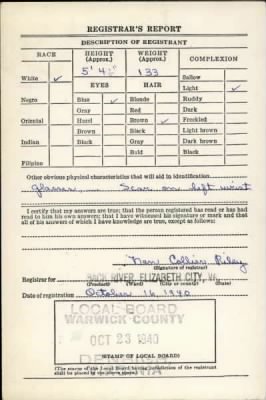 REGISTRAR'S REPORT
DESCRIPTION OF REGISTRANT
RACE HEIGHT (Approx.) WEIGHT (Approx.) COMPLEXION
5' 4½" 133
White ✓ Sallow
EYES HAIR Light ✓
Negro Blue ✓ Blonde Ruddy
Gray Red Dark
Oriental Hazel Brown ✓ Freckled
Brown Black Light brown
Indian Black Gray Dark brown
Bald Black
Filipino
Other obvious physical characteristics that will aid in identification
glasses — Scar on left wrist
I certify that my answers are true; that the person registered has read or has had
read to him his own answers; that I have witnessed his signature or mark and that
all of his answers of which I have knowledge are true, except as follows:
Collier Riley
(Signature of registrar)
Registrar for BACK RIVER, ELIZABETH CITY, VA.
(Precinct) (Ward) (City or county) (State)
Date of registration October 16, 1940
LOCAL BOARD
WARWICK COUNTY
OCT 23 1940
(STAMP OF LOCAL BOARD)
(The stamp of the Local Board having jurisdiction of the registrant
shall be placed in the above space.)